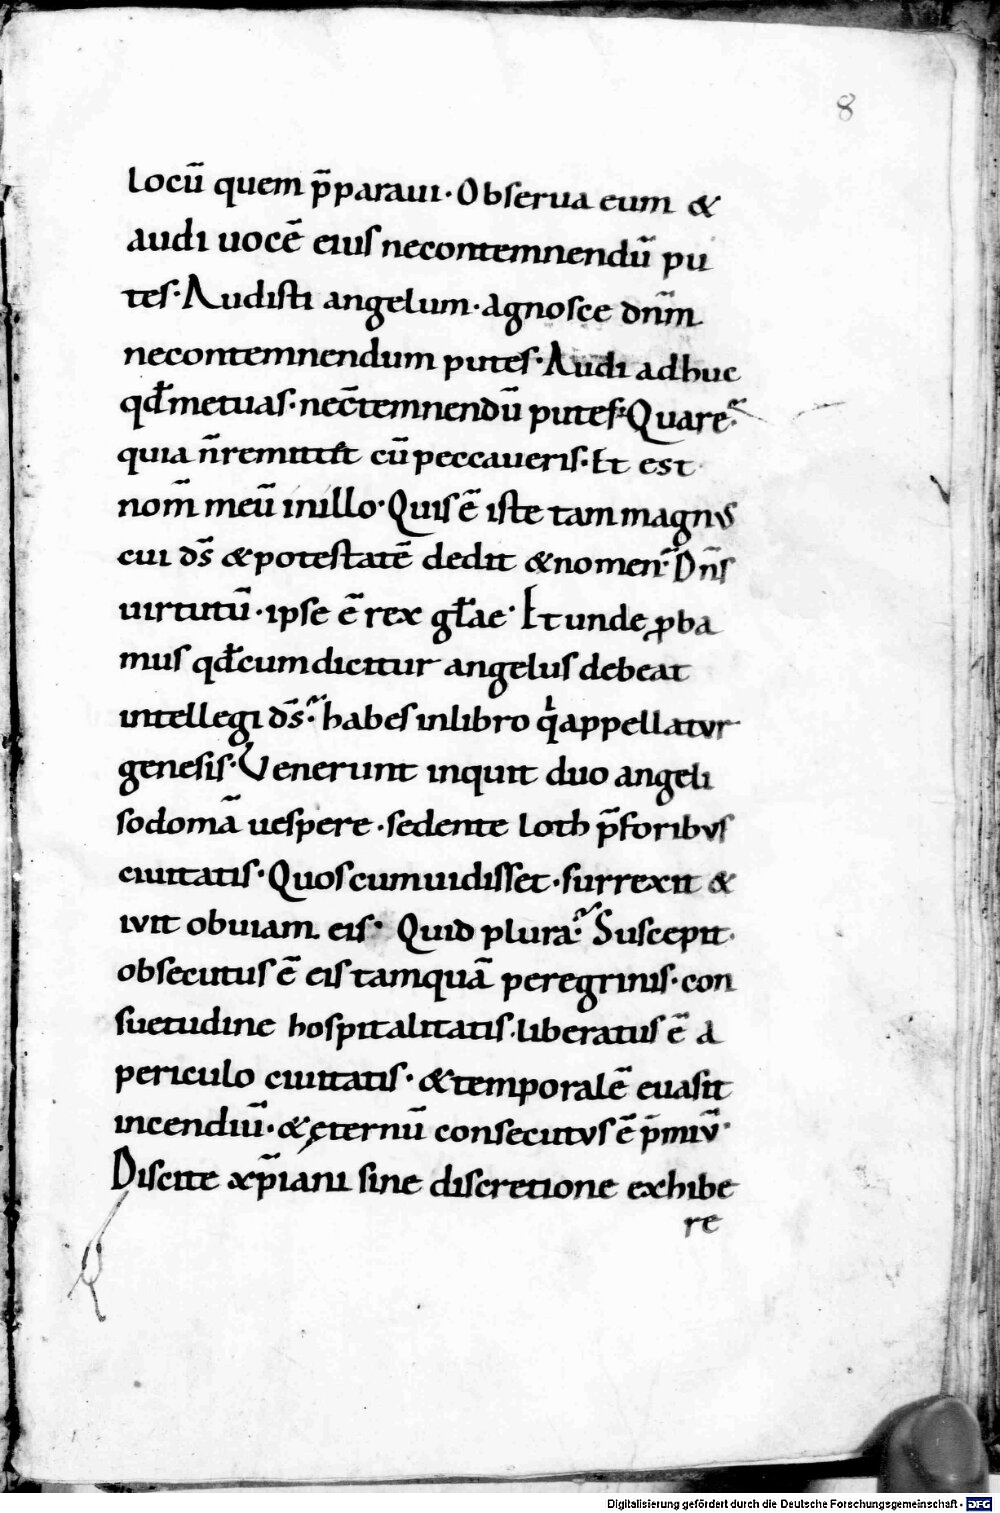 8
locū quem p̄paraui· Obserua eum &
audi uocē eius necontemnendū pu
tes· Audisti angelum· agnosce dn̄m
necontemnendum putes· Audi adhuc
qđ metuas· nec̄temnendū putes· Quare?
quia n̄ remittit cū peccaueris· Et est
nom̄ meū inillo· Quis ē iste tam magnus
cui ds̄ & potestatē dedit & nomen? Dn̄s
uirtutū· ipse ē rex gl̄ae· Et unde ꝓba
mus qđ cum dicitur angelus debeat
intellegi ds̄? habes inlibro qͥ appellatur
genesis· Venerunt inquit duo angeli
sodomā uespere· sedente loth p̄ foribus
ciuitatis· Quos cum uidisset· surrexit &
iuit obuiam eis· Quid plura? Suscepit·
obsecutus ē eis tamquā peregrinis· con
suetudine hospitalitatis· liberatus ē a
periculo ciuitatis· & temporalē euasit
incendiū· & ęternū consecutus ē p̄miū·
Discite xp̄iani sine discretione exhibe
re
Digitalisierung gefördert durch die Deutsche Forschungsgemeinschaft - DFG